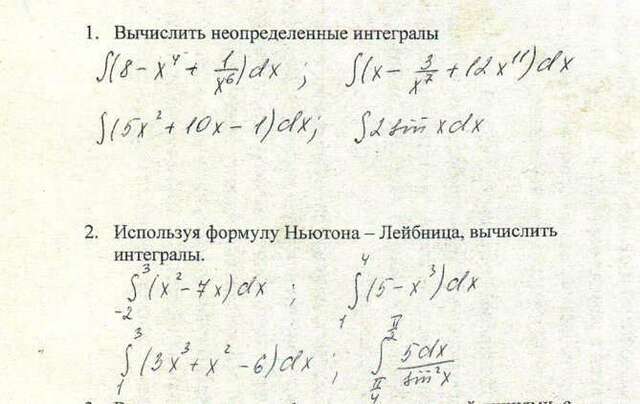 1. Вычислить неопределенные интегралы
∫(8 − x⁴ + 1/x⁶)dx ; ∫(x − 3/x⁷ + 12x¹¹)dx
∫(5x² + 10x − 1)dx; ∫2 sin x dx
2. Используя формулу Ньютона – Лейбница, вычислить
интегралы.
∫₋₂³ (x² − 7x)dx ; ∫₁⁴ (5 − x³)dx
∫₁³ (3x³ + x² − 6)dx ; ∫_{π/4}^{π/2} 5dx/sin²x